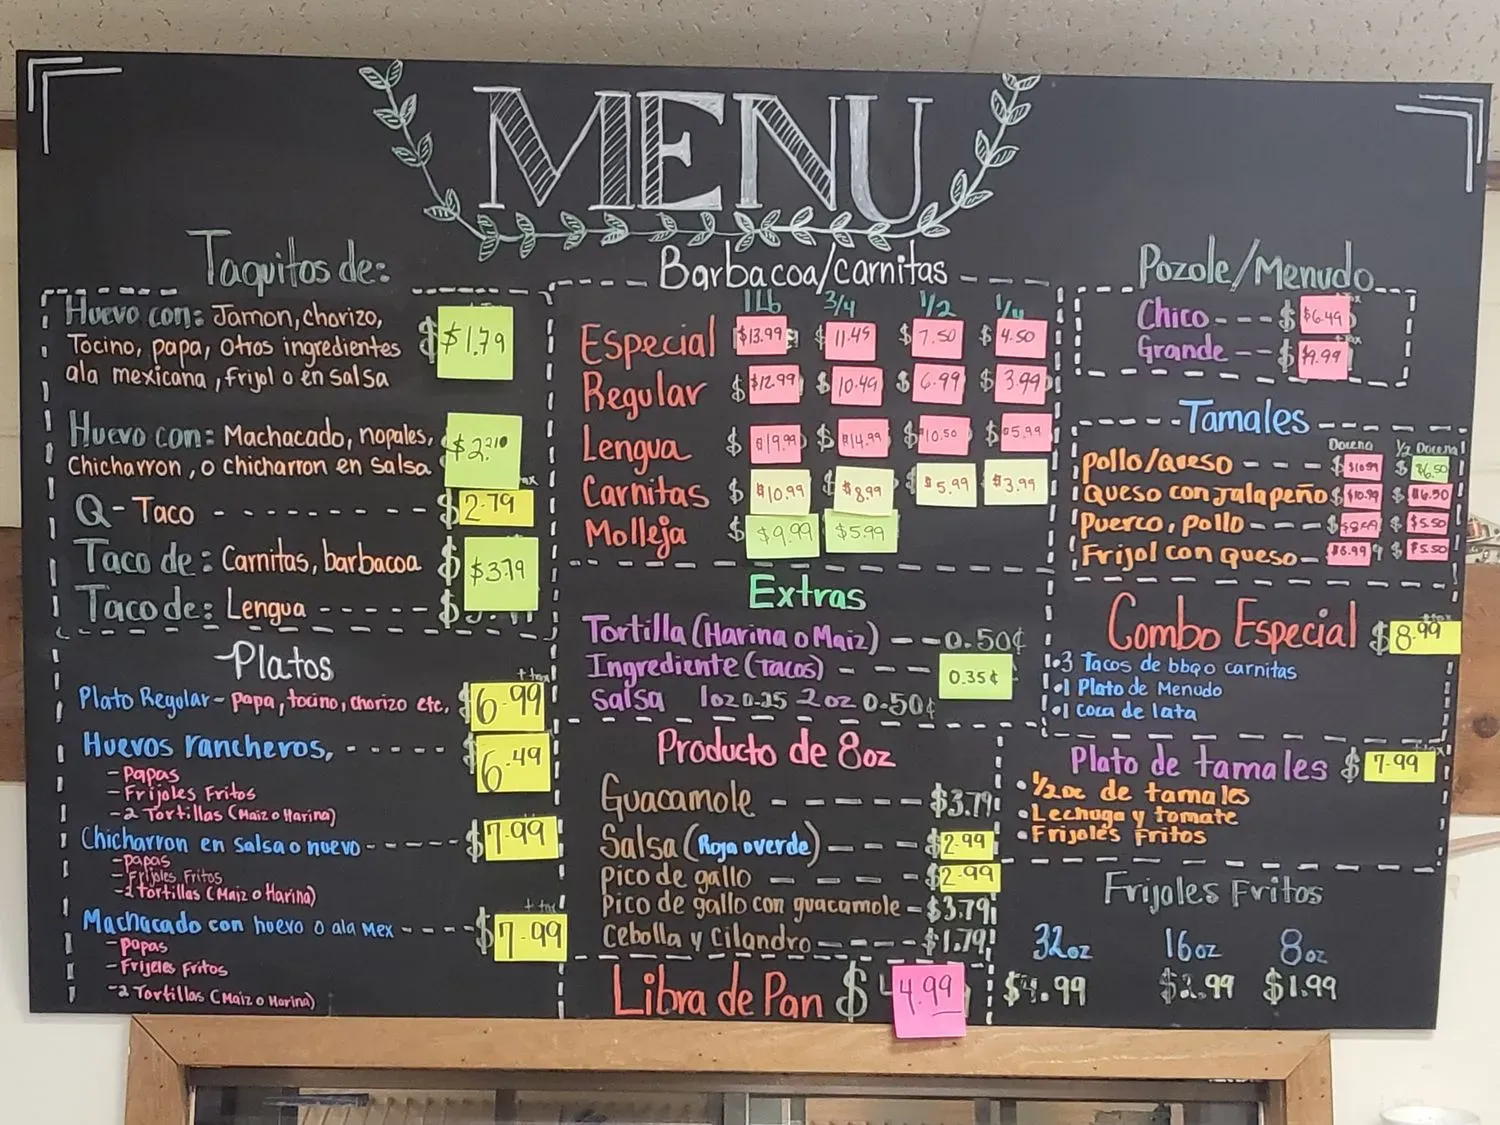 MENU
Taquitos de:
Huevo con: Jamon, chorizo, $1.79
Tocino, papa, otros ingredientes
ala mexicana, frijol o en salsa
Huevo con: Machacado, nopales,
Chicharron, o chicharron en salsa
Q-Taco - - - - - - - - $2.79
Taco de: Carnitas, barbacoa $3.79
Taco de: Lengua - - - - - - $
Platos
+ tax
Plato Regular - papa, tocino, chorizo etc, $6.99
Huevos rancheros, - - - - - $6.49
- Papas
- Frijoles Fritos
- 2 Tortillas (Maiz o Harina)
Chicharron en salsa o huevo - - - - - $7.99
- papas
- Frijoles Fritos
- 2 Tortillas (Maiz o Harina)
+ tax
Machacado con huevo o ala Mex - - - - $7.99
- papas
- Frijoles Fritos
- 2 Tortillas (Maiz o Harina)
Barbacoa/carnitas
1Lb 3/4 1/2 1/4
Especial $13.99 $11.49 $7.50 $4.50
Regular $12.99 $10.49 $6.99 $3.99
Lengua $19.99 $14.99 $10.50 $5.99
Carnitas $10.99 $8.99 $5.99 $3.99
Molleja $9.99 $5.99
Extras
Tortilla (Harina o Maiz) - - 0.50¢
Ingrediente (Tacos) - - - 0.35¢
Salsa 1oz 0.25 2oz 0.50¢
Producto de 8oz
Guacamole - - - - - - $3.79
Salsa (Roja o verde) - - - - $2.99
Pico de gallo - - - - - $2.99
Pico de gallo con guacamole - $3.79
Cebolla y Cilandro - - - - $1.79
Libra de Pan $4.99
Pozole/Menudo
Chico - - - $6.49
Grande - - $9.99
Tamales
Docena 1/2 Docena
Pollo/Queso - - - - $10.99 $6.50
Queso con Jalapeño $10.99 $6.50
Puerco, pollo - - - - $5.50
Frijol con queso - $5.50
Combo Especial $8.99
• 3 Tacos de bbq o carnitas
• 1 Plato de Menudo
• 1 Coca de lata
Plato de tamales $7.99
• 1/2 de tamales
• Lechuga y tomate
• Frijoles Fritos
Frijoles Fritos
32oz 16oz 8oz
$4.99 $2.99 $1.99